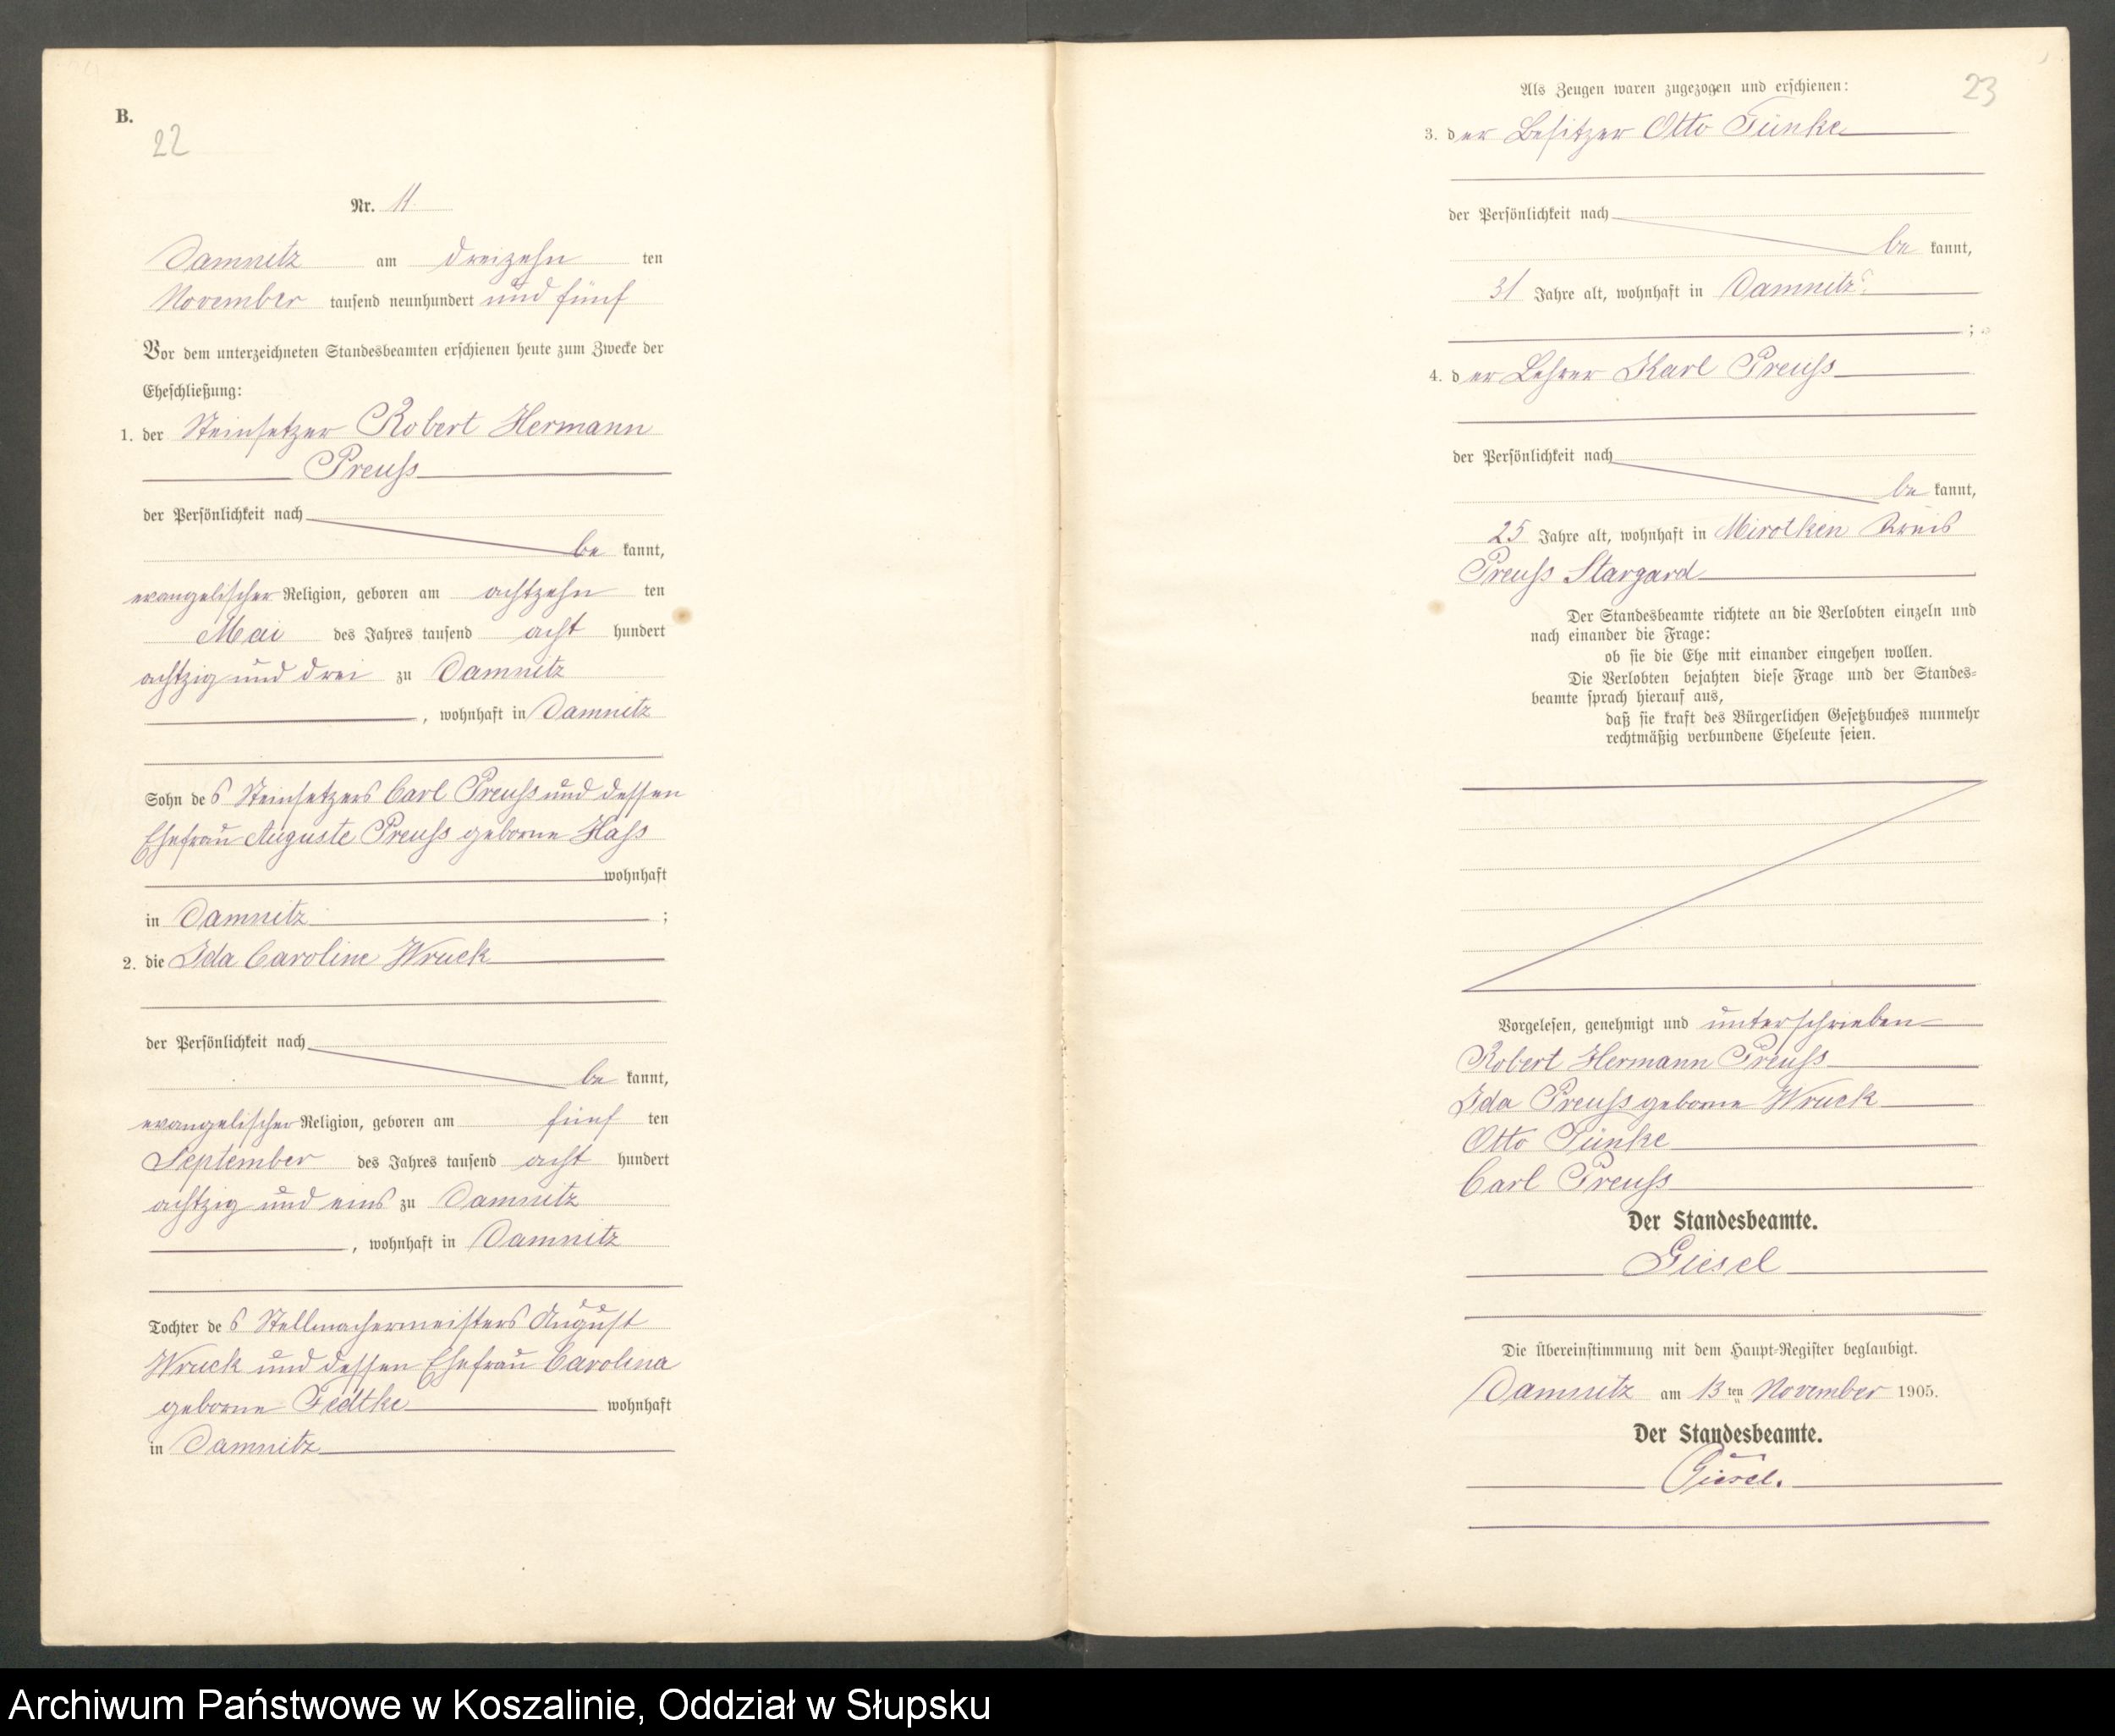 B.
22
Nr. 11
Damnitz am dreizehn ten
November tausend neunhundert und fünf
Vor dem unterzeichneten Standesbeamten erschienen heute zum Zwecke der
Eheschließung:
1. der Steinsetzer Robert Hermann
Preuss
der Persönlichkeit nach
be kannt,
evangelischer Religion, geboren am achtzehn ten
Mai des Jahres tausend acht hundert
achtzig und drei zu Damnitz
, wohnhaft in Damnitz
Sohn des Steinsetzers Carl Preuss und dessen
Ehefrau Auguste Preuss geborne Hass
wohnhaft
in Damnitz ;
2. die Ida Caroline Wruck
der Persönlichkeit nach
be kannt,
evangelischer Religion, geboren am fünf ten
September des Jahres tausend acht hundert
achtzig und eins zu Damnitz
, wohnhaft in Damnitz
Tochter des Stellmachermeisters August
Wruck und dessen Ehefrau Carolina
geborne Fedtke wohnhaft
in Damnitz
23
Als Zeugen waren zugezogen und erschienen:
3. der Besitzer Otto
der Persönlichkeit nach
be kannt,
31 Jahre alt, wohnhaft in Damnitz
;
4. der Lehrer Karl Preuss
der Persönlichkeit nach
be kannt,
25 Jahre alt, wohnhaft in Mirotken Kreis
Preuss Stargard
Der Standesbeamte richtete an die Verlobten einzeln und
nach einander die Frage:
ob sie die Ehe mit einander eingehen wollen.
Die Verlobten bejahten diese Frage und der Standes-
beamte sprach hierauf aus,
daß sie kraft des Bürgerlichen Gesetzbuches nunmehr
rechtmäßig verbundene Eheleute seien.
Vorgelesen, genehmigt und unterschrieben
Robert Hermann Preuss
Ida Preuss geborne Wruck
Otto
Carl Preuss
Der Standesbeamte.
Giesel
Die Übereinstimmung mit dem Haupt-Register beglaubigt.
Damnitz am 13 ten November 1905.
Der Standesbeamte.
Giesel.
Archiwum Państwowe w Koszalinie, Oddział w Słupsku